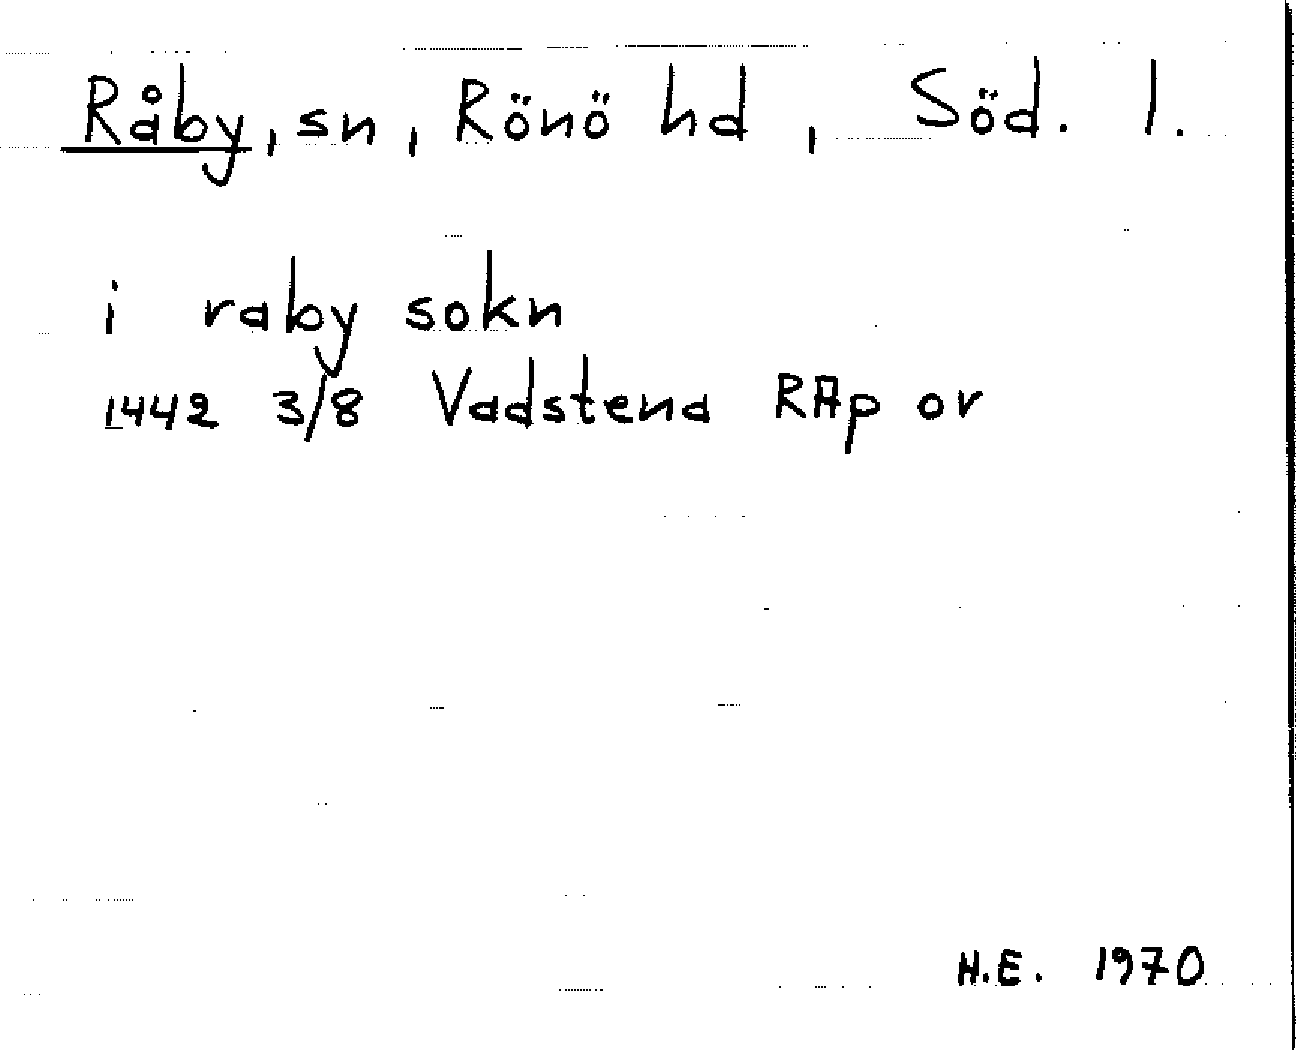 Råby, sn, Rönö hd, Söd. l.
i raby sokn
1442 3/8 Vadstena RAp or
H.E. 1970